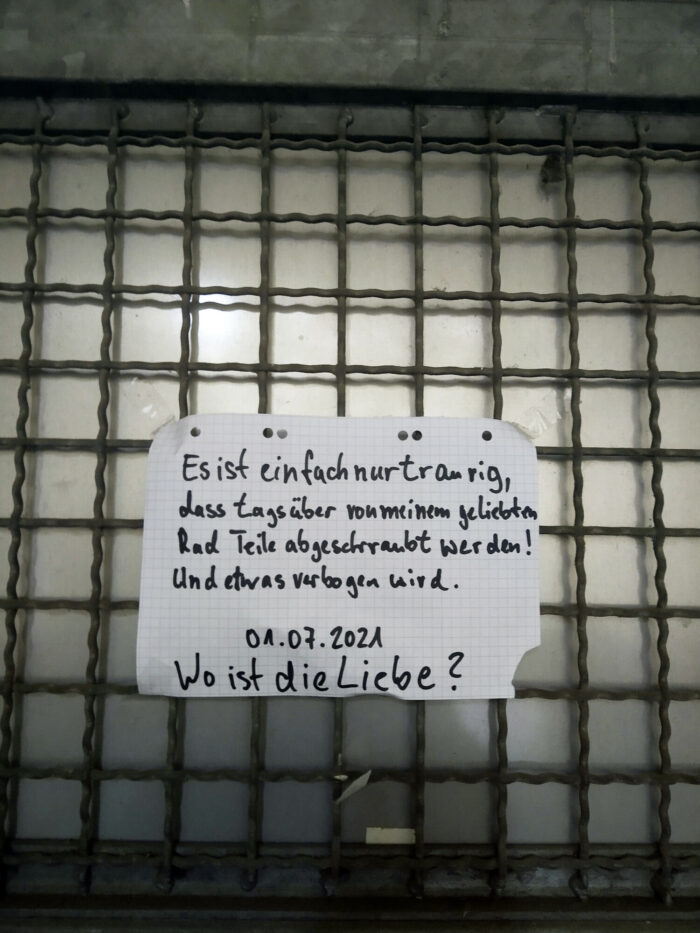 Es ist einfach nur traurig,
dass tagsüber von meinem geliebten
Rad Teile abgeschraubt werden!
Und etwas verbogen wird.
01.07.2021
Wo ist die Liebe?